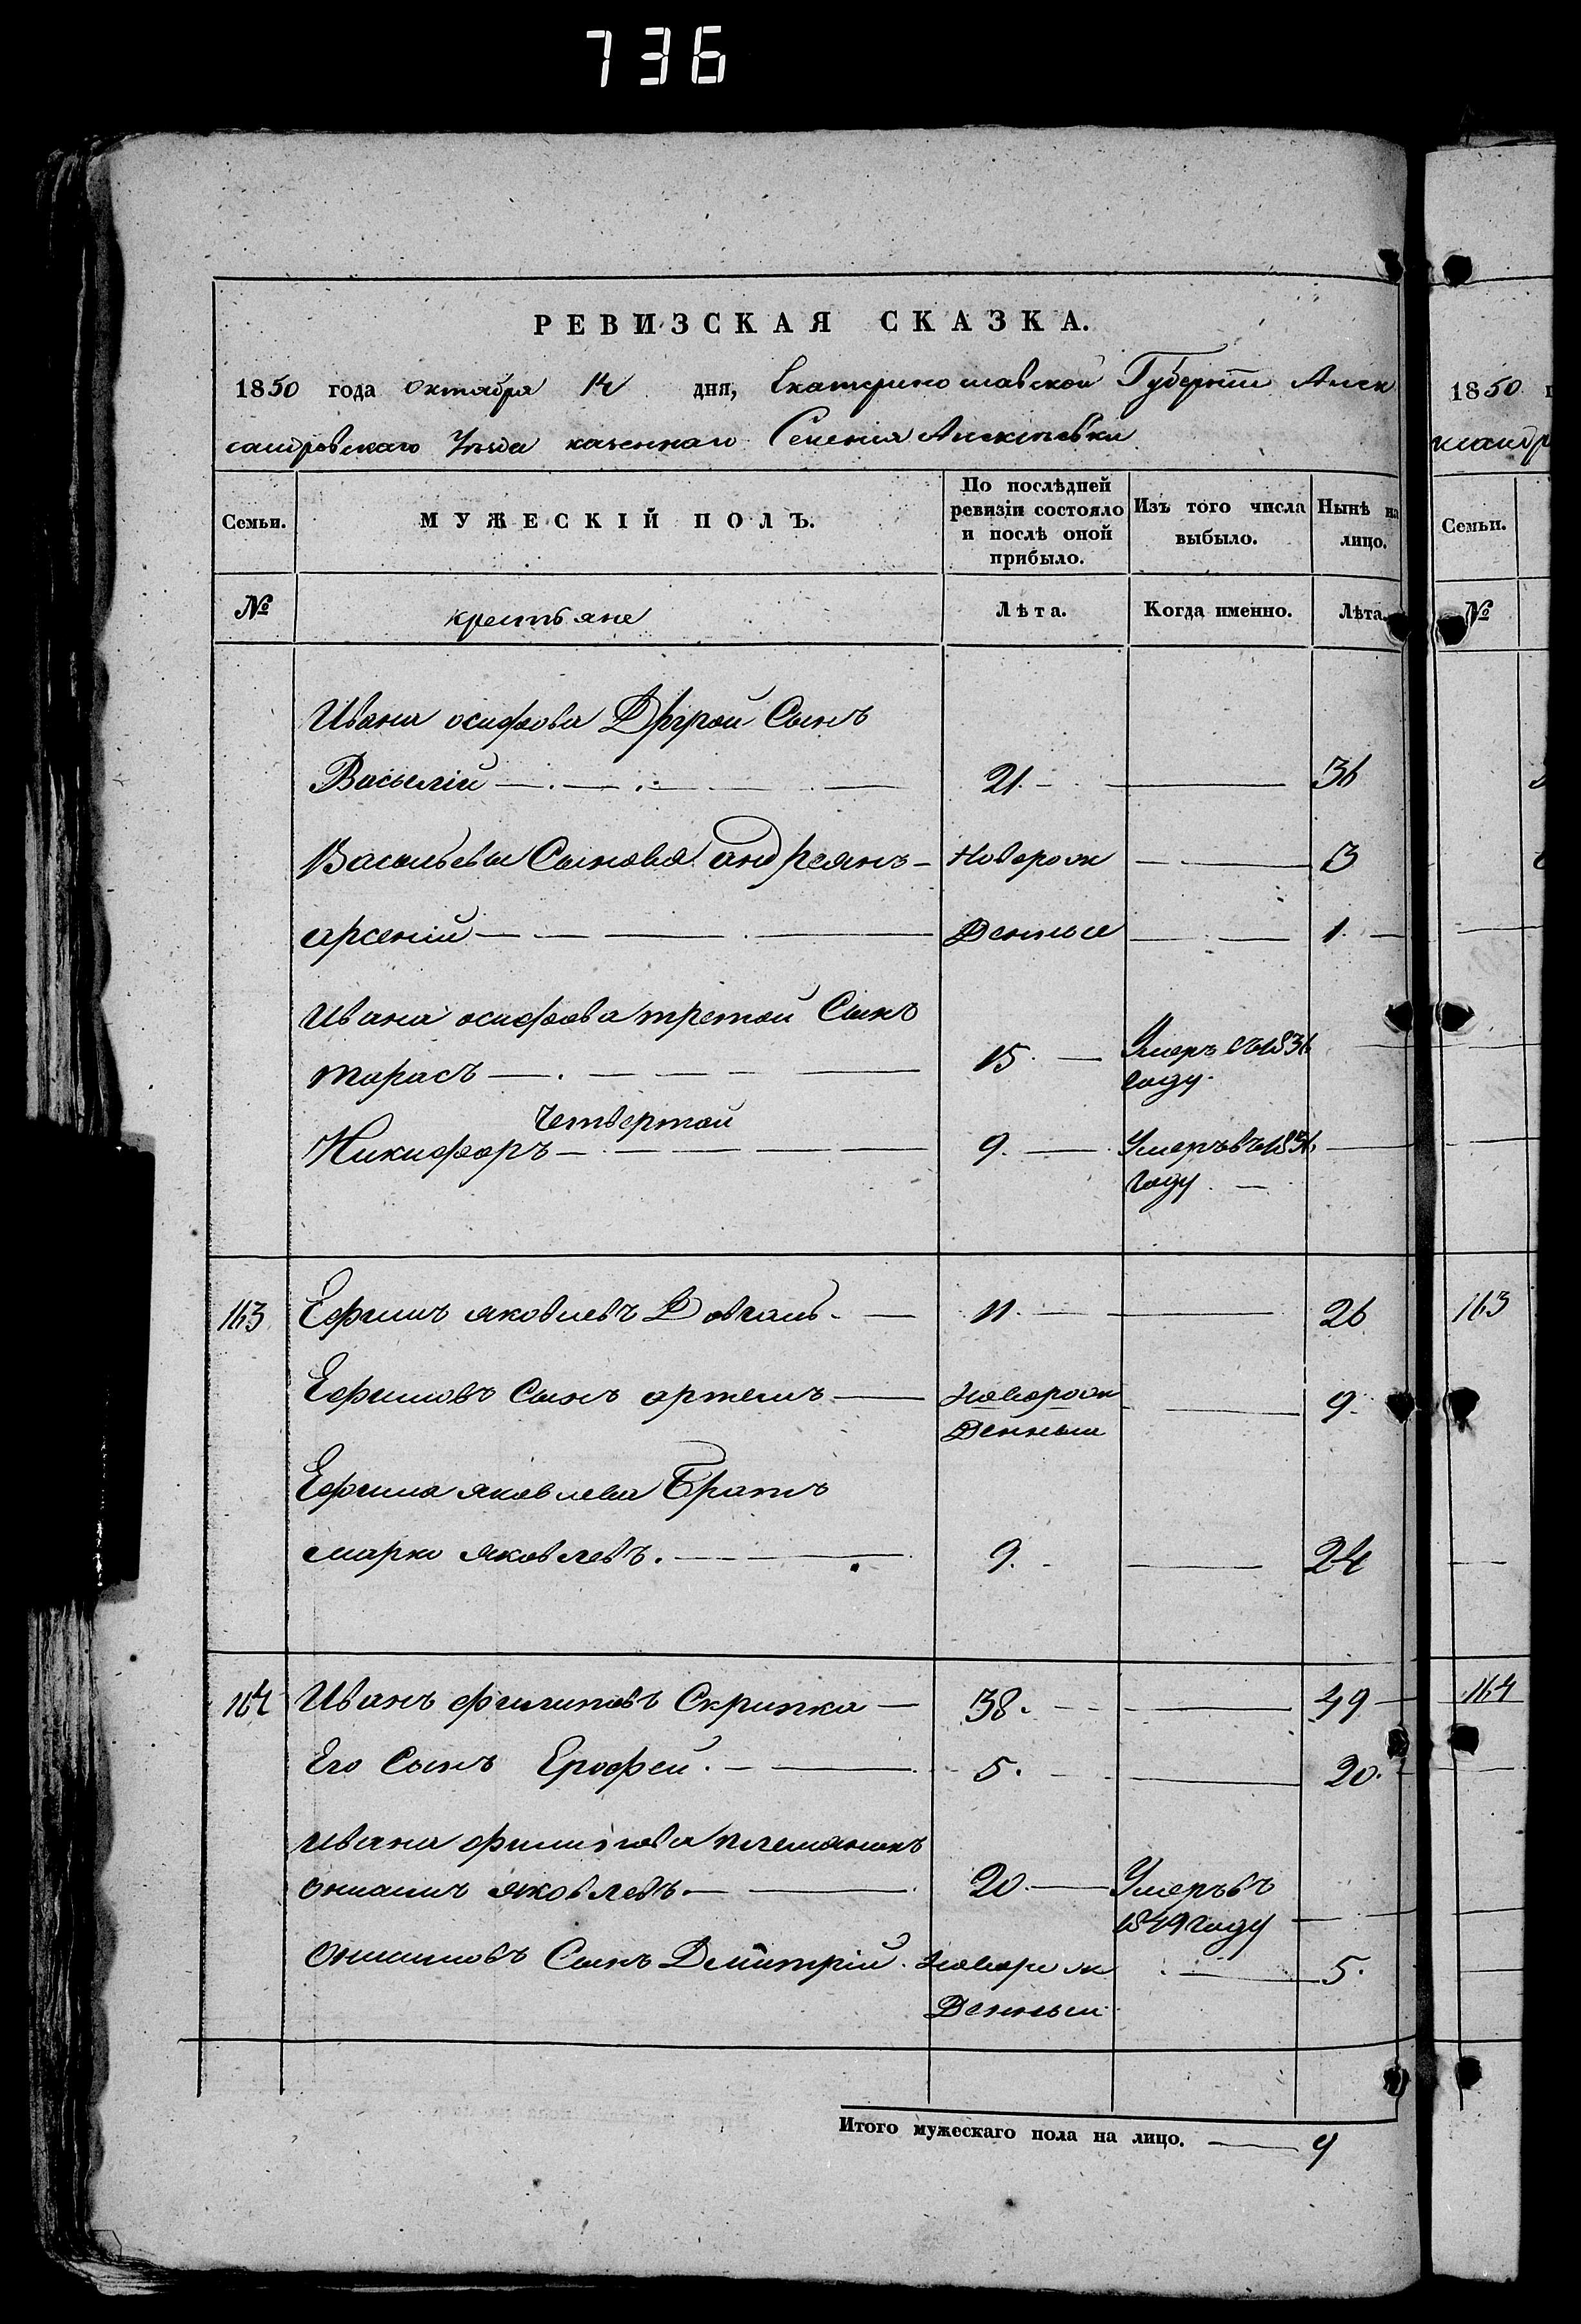 736
РЕВИЗСКАЯ СКАЗКА.
1850 года октября 14 дня, Екатеринославской Губерніи Алек
сандровскаго Уѣзда казеннаго Селенія
1850
Семьи.
МУЖЕСКІЙ ПОЛЪ.
По послѣдней ревизіи состояло и послѣ оной прибыло.
Изъ того числа выбыло.
Нынѣ на лицо.
Семьи.
№
крестьяне
Лѣта.
Когда именно.
Лѣта.
№
Ивана осифова Другой Сынъ
Василій 21. 36
Васильевы Сыновья андреянъ Новорож 3
арсеній Денные 1.
Ивана осифова третой Сынъ
тарасъ 15. Умеръ въ 1836
году.
Четвертой
Никифоръ 9. Умеръ въ 1836
году.
163 Ефимъ яковлевъ Довгаль. 11. 26 163
Ефимовъ Сынъ артемъ Новорож 9.
Денный
Ефима яковлева Братъ
марко яковлевъ. 9. 24
164 Иванъ филиповъ Скрипка 38. 49 164
Его Сынъ Ерофей. 5. 20.
Ивана филипова племяникъ
онисимъ яковлевъ. 20. Умеръ въ
1849 году
онисимовъ Сынъ Дмитрій. Новорож 5.
Денный
Итого мужескаго пола на лицо. 9